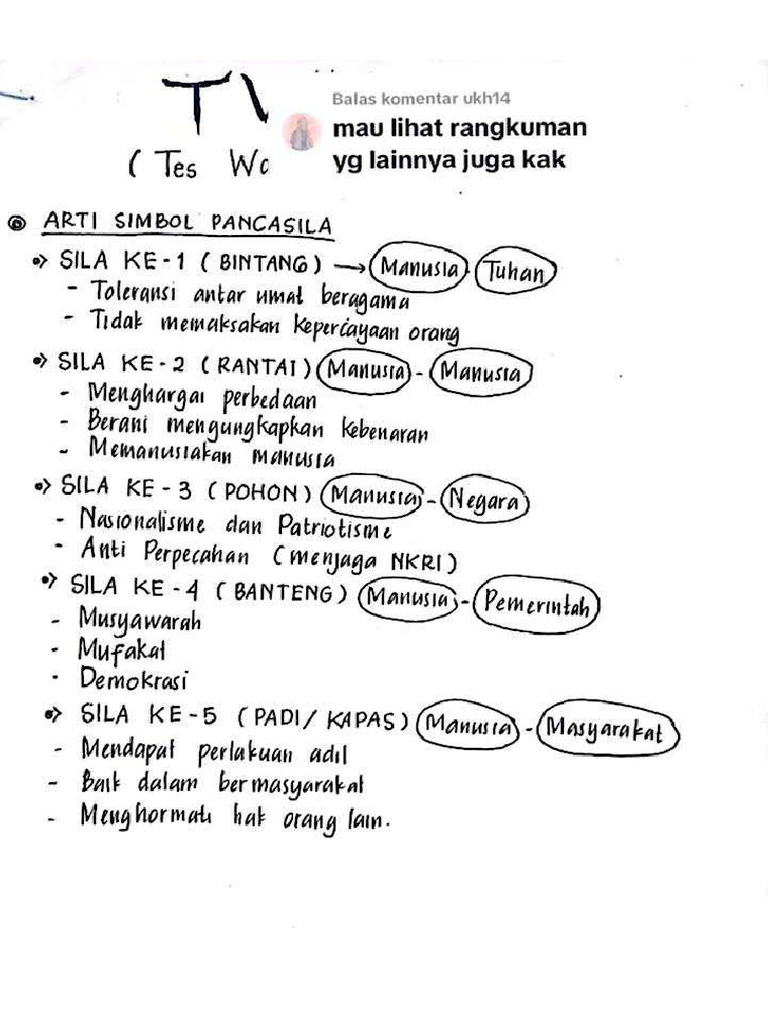 TW
Balas komentar ukh14
mau lihat rangkuman
yg lainnya juga kak
( Tes
ARTI SIMBOL PANCASILA
SILA KE-1 ( BINTANG ) → Manusia - Tuhan
- Toleransi antar umat beragama
- Tidak memaksakan kepercayaan orang
SILA KE-2 ( RANTAI ) Manusia - Manusia
- Menghargai perbedaan
- Berani mengungkapkan kebenaran
- Memanusiakan manusia
SILA KE-3 ( POHON ) Manusia - Negara
- Nasionalisme dan Patriotisme
- Anti Perpecahan ( menjaga NKRI )
SILA KE-4 ( BANTENG ) Manusia - Pemerintah
- Musyawarah
- Mufakat
- Demokrasi
SILA KE-5 ( PADI / KAPAS ) Manusia - Masyarakat
- Mendapat perlakuan adil
- Baik dalam bermasyarakat
- Menghormati hak orang lain.